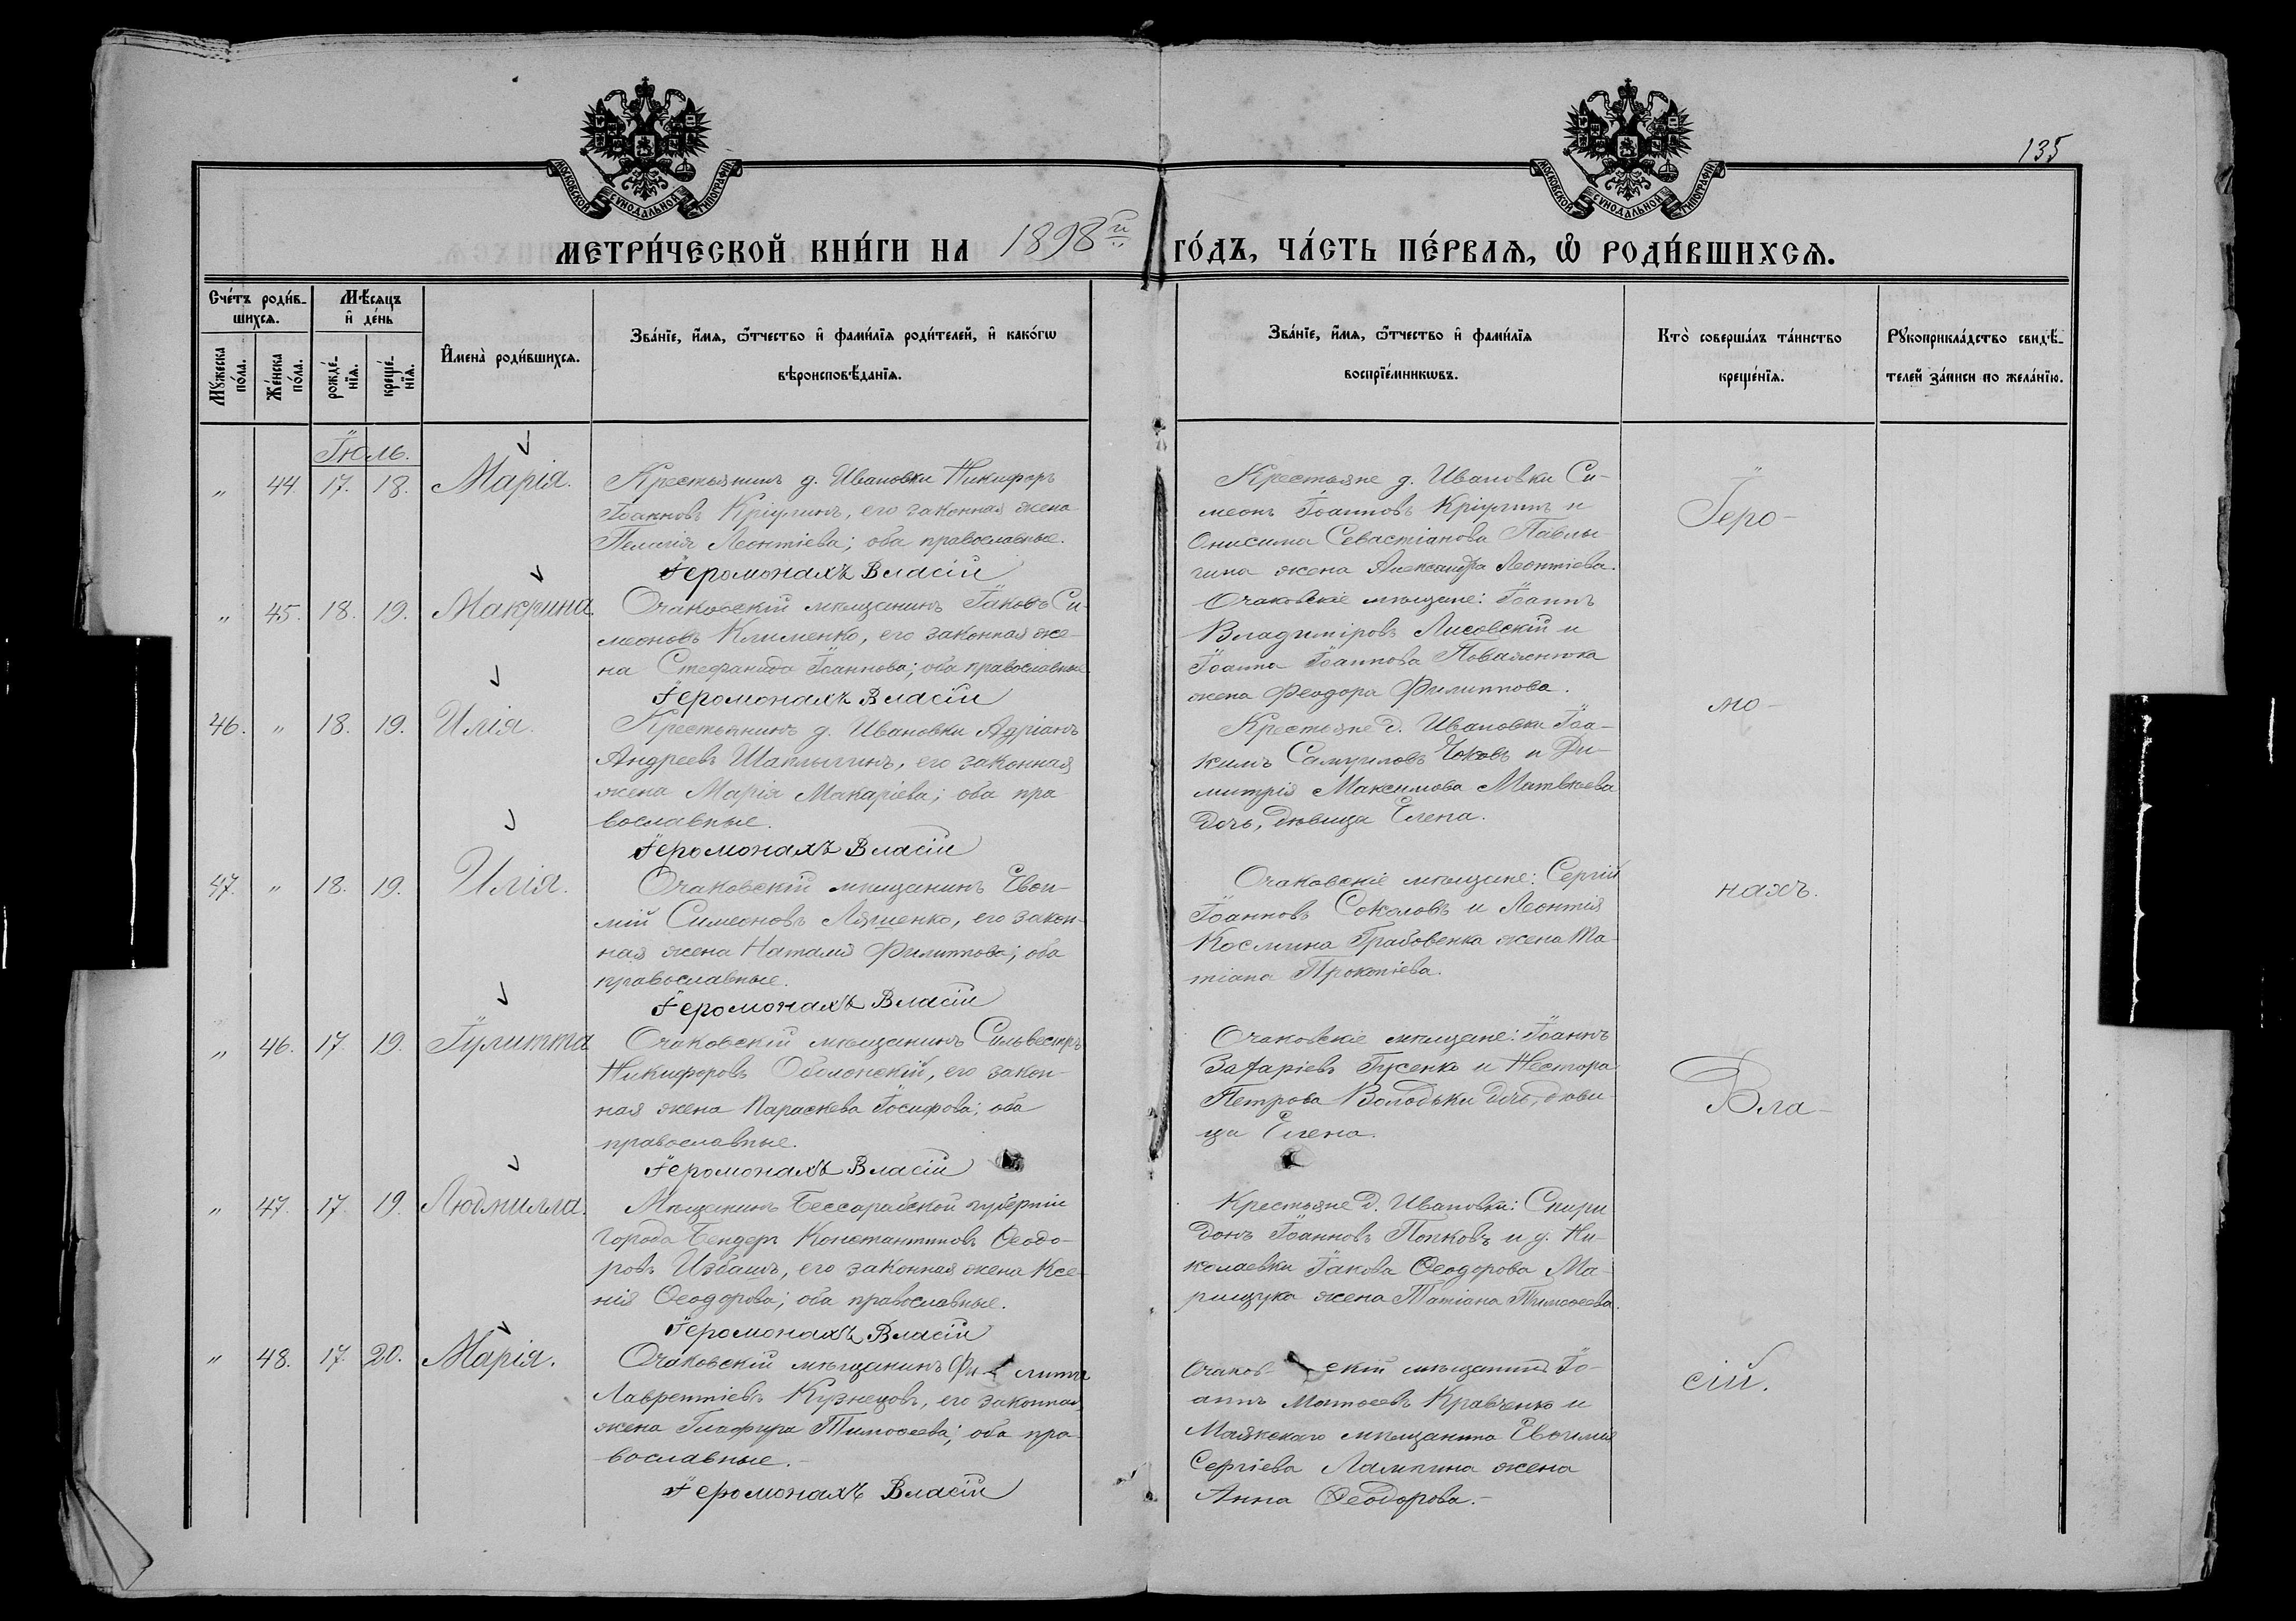 135
МОСКОВСКОЙ СѴНОДАЛЬНОЙ ТИПОГРАФІИ
МОСКОВСКОЙ СѴНОДАЛЬНОЙ ТИПОГРАФІИ
МЕТРИ́ЧЕСКОЙ КНИ́ГИ НА 1898й ГО́ДЪ, ЧА́СТЬ ПЕ́РВАѦ, Ѡ РОДИ́ВШИХСѦ.
Сче́тъ роди́вшихсѧ.
Мꙋ́жеска по́ла.
Же́нска по́ла.
Мѣ́сѧцъ и҆ де́нь
рожде́нїѧ.
креще́нїѧ.
И҆мена̀ роди́вшихсѧ.
Зва́нїе, и҆́мѧ, ѻ҆́тчество и҆ фами́лїѧ роди́телей, и҆ како́гѡ
вѣроисповѣ́данїѧ.
Зва́нїе, и҆́мѧ, ѻ҆́тчество и҆ фами́лїѧ
воспрїе́мникѡвъ.
Кто̀ соверша́лъ та́инство
креще́нїѧ.
Рꙋкоприкла́дство свидѣ́-
телей за́писи по жела́нїю.
Іюль.
„ 44. 17. 18. Марія.
Крестьянинъ д. Ивановки Никифоръ
Іоанновъ Кріулинъ, его законная жена
Пелагія Леонтіева; оба православные.
Іеромонахъ Власій
Крестьяне д. Ивановки Си-
меонъ Іоанновъ Кріулинъ и
Онисима Севастіанова Павлы-
гина жена Александра Леонтіева.
„ 45. 18. 19. Макрина
Очаковскій мѣщанинъ Іаковъ Си-
меоновъ Клименко, его законная же-
на Стефанида Іоаннова; оба православные
Іеромонахъ Власій
Очаковскіе мѣщане: Іоаннъ
Владиміровъ Лисовскій и
Іоанна Іоаннова Поваленюка
жена Феодора Филиппова.
46. „ 18. 19. Илія.
Крестьянинъ д. Ивановки Адріанъ
Андреевъ Шаплыгинъ, его законная
жена Марія Макаріева; оба пра-
вославные.
Іеромонахъ Власій
Крестьяне д. Ивановки Іоа-
кимъ Самуиловъ Чоковъ и Ди-
митрія Максимова Матвѣева
дочь, дѣвица Елена.
47. „ 18. 19. Илія.
Очаковскій мѣщанинъ Евѳи-
мій Симеоновъ Ляшенко, его закон-
ная жена Наталія Филиппова; оба
православные.
Іеромонахъ Власій
Очаковскіе мѣщане: Сергій
Іоанновъ Соколовъ и Леонтія
Космина Грабовенка жена Та-
тіана Прокопіева.
„ 46. 17. 19. Іулитта
Очаковскій мѣщанинъ Сильвестръ
Никифоровъ Оболонскій, его закон-
ная жена Параскева Іосифова; оба
православные.
Іеромонахъ Власій
Очаковскіе мѣщане: Іоаннъ
Захаріевъ Гусенко и Нестора
Петрова Володьки дочь, дѣви-
ца Елена.
„ 47. 17. 19. Людмилла.
Мѣщанинъ Бессарабской губерніи
города Бендеръ Константиновъ Ѳеодо-
ровъ Избашъ, его законная жена Ксе-
нія Ѳеодорова; оба православные.
Іеромонахъ Власій
Крестьяне д. Ивановки: Спири-
донъ Іоанновъ Попковъ и д. Ни-
колаевки Іакова Ѳеодорова Ма-
рищука жена Татіана Тимоѳеева.
„ 48. 17. 20. Марія.
Очаковскій мѣщанинъ Фи-липпъ
Лаврентіевъ Кузнецовъ, его законная
жена Глафира Тимоѳеева; оба пра-
вославные.
Іеромонахъ Власій
Очаков-скій мѣщанинъ Іо-
аннъ Матѳеевъ Кравченко и
Маякскаго мѣщанина Евѳимія
Сергіева Лампина жена
Анна Ѳеодорова.
Іеро-
мо-
нахъ.
Вла-
сій.